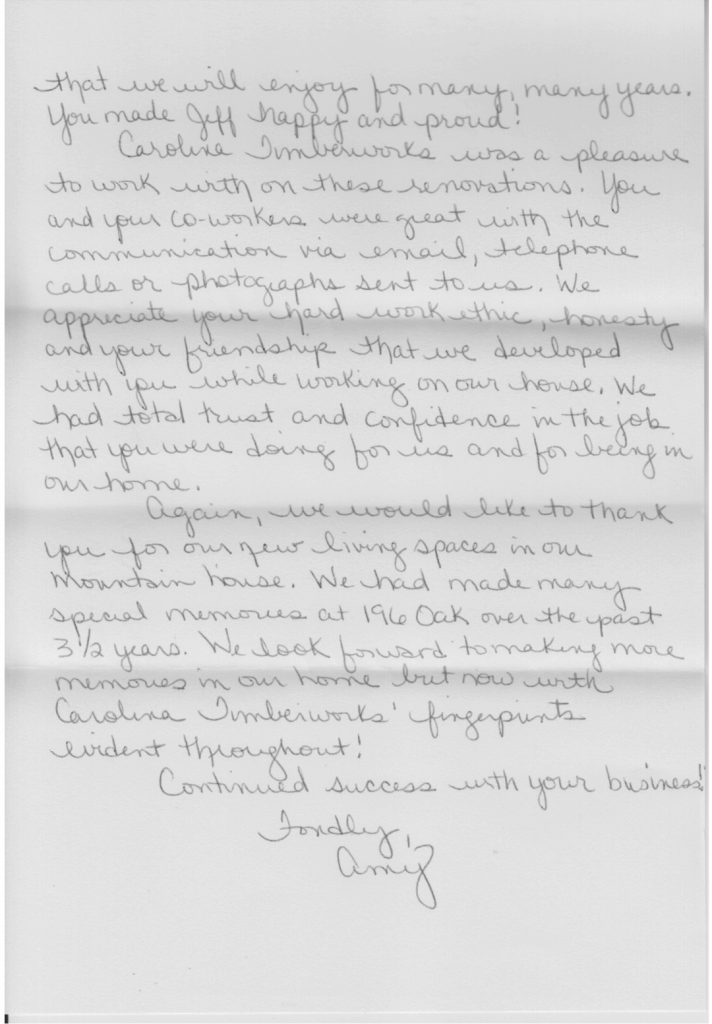 that we will enjoy for many, many years.
You made Jeff happy and proud!
Carolina Timberworks was a pleasure
to work with on these renovations. You
and your co-workers were great with the
communication via email, telephone
calls or photographs sent to us. We
appreciate your hard work ethic, honesty
and your friendship that we developed
with you while working on our house. We
had total trust and confidence in the job
that you were doing for us and for being in
our home.
Again, we would like to thank
you for our new living spaces in our
mountain house. We had made many
special memories at 196 Oak over the past
3 1/2 years. We look forward to making more
memories in our home but now with
Carolina Timberworks' fingerprints
evident throughout!
Continued success with your business!
Fondly,
Amy